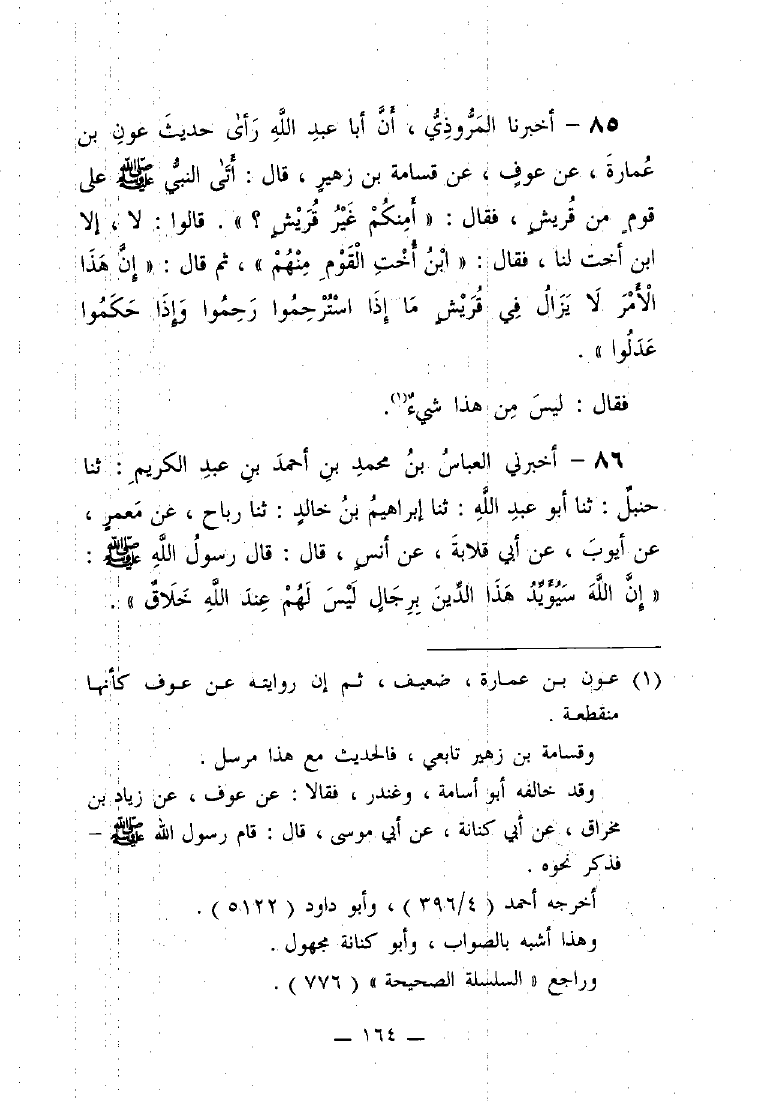 ٨٥ – أخبرنا المَرُّوذِيُّ ، أَنَّ أبا عبدِ اللَّهِ رَأىٰ حديثَ عونِ بن
عُمارةَ ، عن عوفٍ ، عن قسامة بن زهيرٍ ، قال : أَتَى النبيُّ ﷺ على
قومٍ من قُريشٍ ، فقال : « أَمِنكُمْ غَيْرُ قُرَيْشٍ ؟ » . قالوا : لا ، إلا
ابن أخت لنا ، فقال : « ابْنُ أُخْتِ الْقَوْمِ مِنْهُمْ » ، ثم قال : « إِنَّ هَذَا
الْأَمْرَ لَا يَزَالُ فِي قُرَيْشٍ مَا إِذَا اسْتُرْحِمُوا رَحِمُوا وَإِذَا حَكَمُوا
عَدَلُوا » .
فقال : ليسَ مِن هذا شيءٌ(١).
٨٦ – أخبرني العباسُ بنُ محمدِ بنِ أحمدَ بنِ عبدِ الكريمِ : ثنا
حنبلٌ : ثنا أبو عبدِ اللَّهِ : ثنا إبراهيمُ بنُ خالدٍ : ثنا رباح ، عن مَعمرٍ ،
عن أيوبَ ، عن أبي قلابةَ ، عن أنسٍ ، قال : قال رسولُ اللَّهِ ﷺ :
« إِنَّ اللَّهَ سَيُؤَيِّدُ هَذَا الدِّينَ بِرِجَالٍ لَيْسَ لَهُمْ عِندَ اللَّهِ خَلَاقٌ » .
(١) عون بن عمارة ، ضعيف ، ثم إن روايته عن عوف كأنها
منقطعة .
وقسامة بن زهير تابعي ، فالحديث مع هذا مرسل .
وقد خالفه أبو أسامة ، وغندر ، فقالا : عن عوف ، عن زياد بن
مخراق ، عن أبي كنانة ، عن أبي موسى ، قال : قام رسول الله ﷺ –
فذكر نحوه .
أخرجه أحمد ( ٣٩٦/٤ ) ، وأبو داود ( ٥١٢٢ ) .
وهذا أشبه بالصواب ، وأبو كنانة مجهول .
وراجع « السلسلة الصحيحة » ( ٧٧٦ ) .
– ١٦٤ –